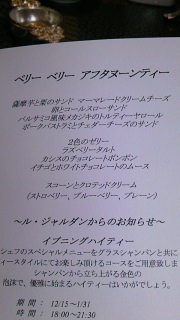 ベリー ベリー アフタヌーンティー
薩摩芋と栗のサンド マーマレードクリームチーズ
卵とコールスローサンド
バルサミコ風味メカジキのトルティーヤロール
ポークパストラミとチェダーチーズのサンド
2色のゼリー
ラズベリータルト
カシスのチョコレートボンボン
イチゴとホワイトチョコレートのムース
スコーンとクロテッドクリーム
(ストロベリー、ブルーベリー、プレーン)
～ル・ジャルダンからのお知らせ～
イブニングハイティー
シェフのスペシャルメニューをグラスシャンパンと共に
ィースタイルにてお楽しみ頂けるコースをご用意致しま
シャンパンから立ち上がる金色の
泡沫で、優雅に始まるハイティーはいかがでしょう。
期 間： 12/15～1/31
時 間： 18:00～21:30